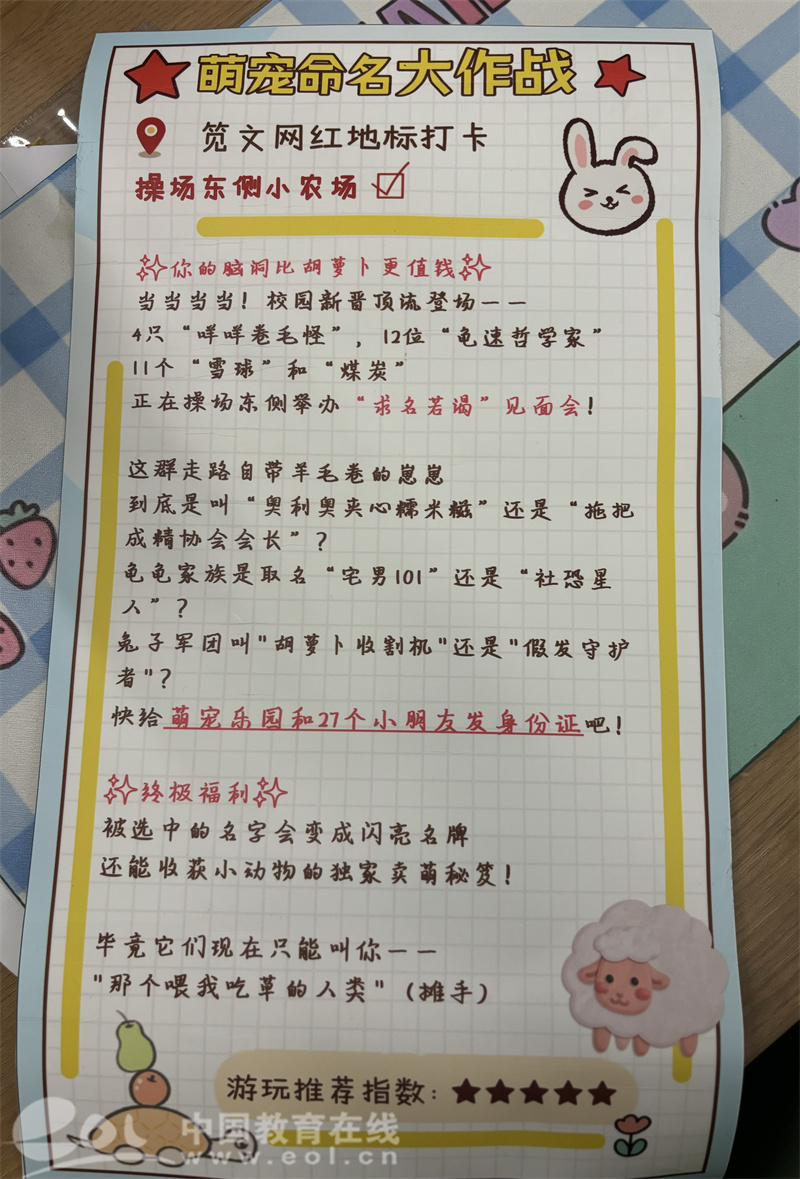 萌宠命名大作战
笕文网红地标打卡
操场东侧小农场
你的脑洞比胡萝卜更值钱
当当当当！校园新晋顶流登场——
4只“咩咩卷毛怪”，12位“龟速哲学家”
11个“雪球”和“煤炭”
正在操场东侧举办“求名若渴”见面会！
这群走路自带羊毛卷的崽崽
到底是叫“奥利奥夹心糯米糍”还是“拖把
成精协会会长”？
龟龟家族是取名“宅男101”还是“社恐星
人”？
兔子军团叫"胡萝卜收割机"还是"假发守护
者"？
快给萌宠乐园和27个小朋友发身份证吧！
终极福利
被选中的名字会变成闪亮名牌
还能收获小动物的独家卖萌秘笈！
毕竟它们现在只能叫你——
"那个喂我吃草的人类"（摊手）
游玩推荐指数：★★★★★
eol 中国教育在线
www.eol.cn